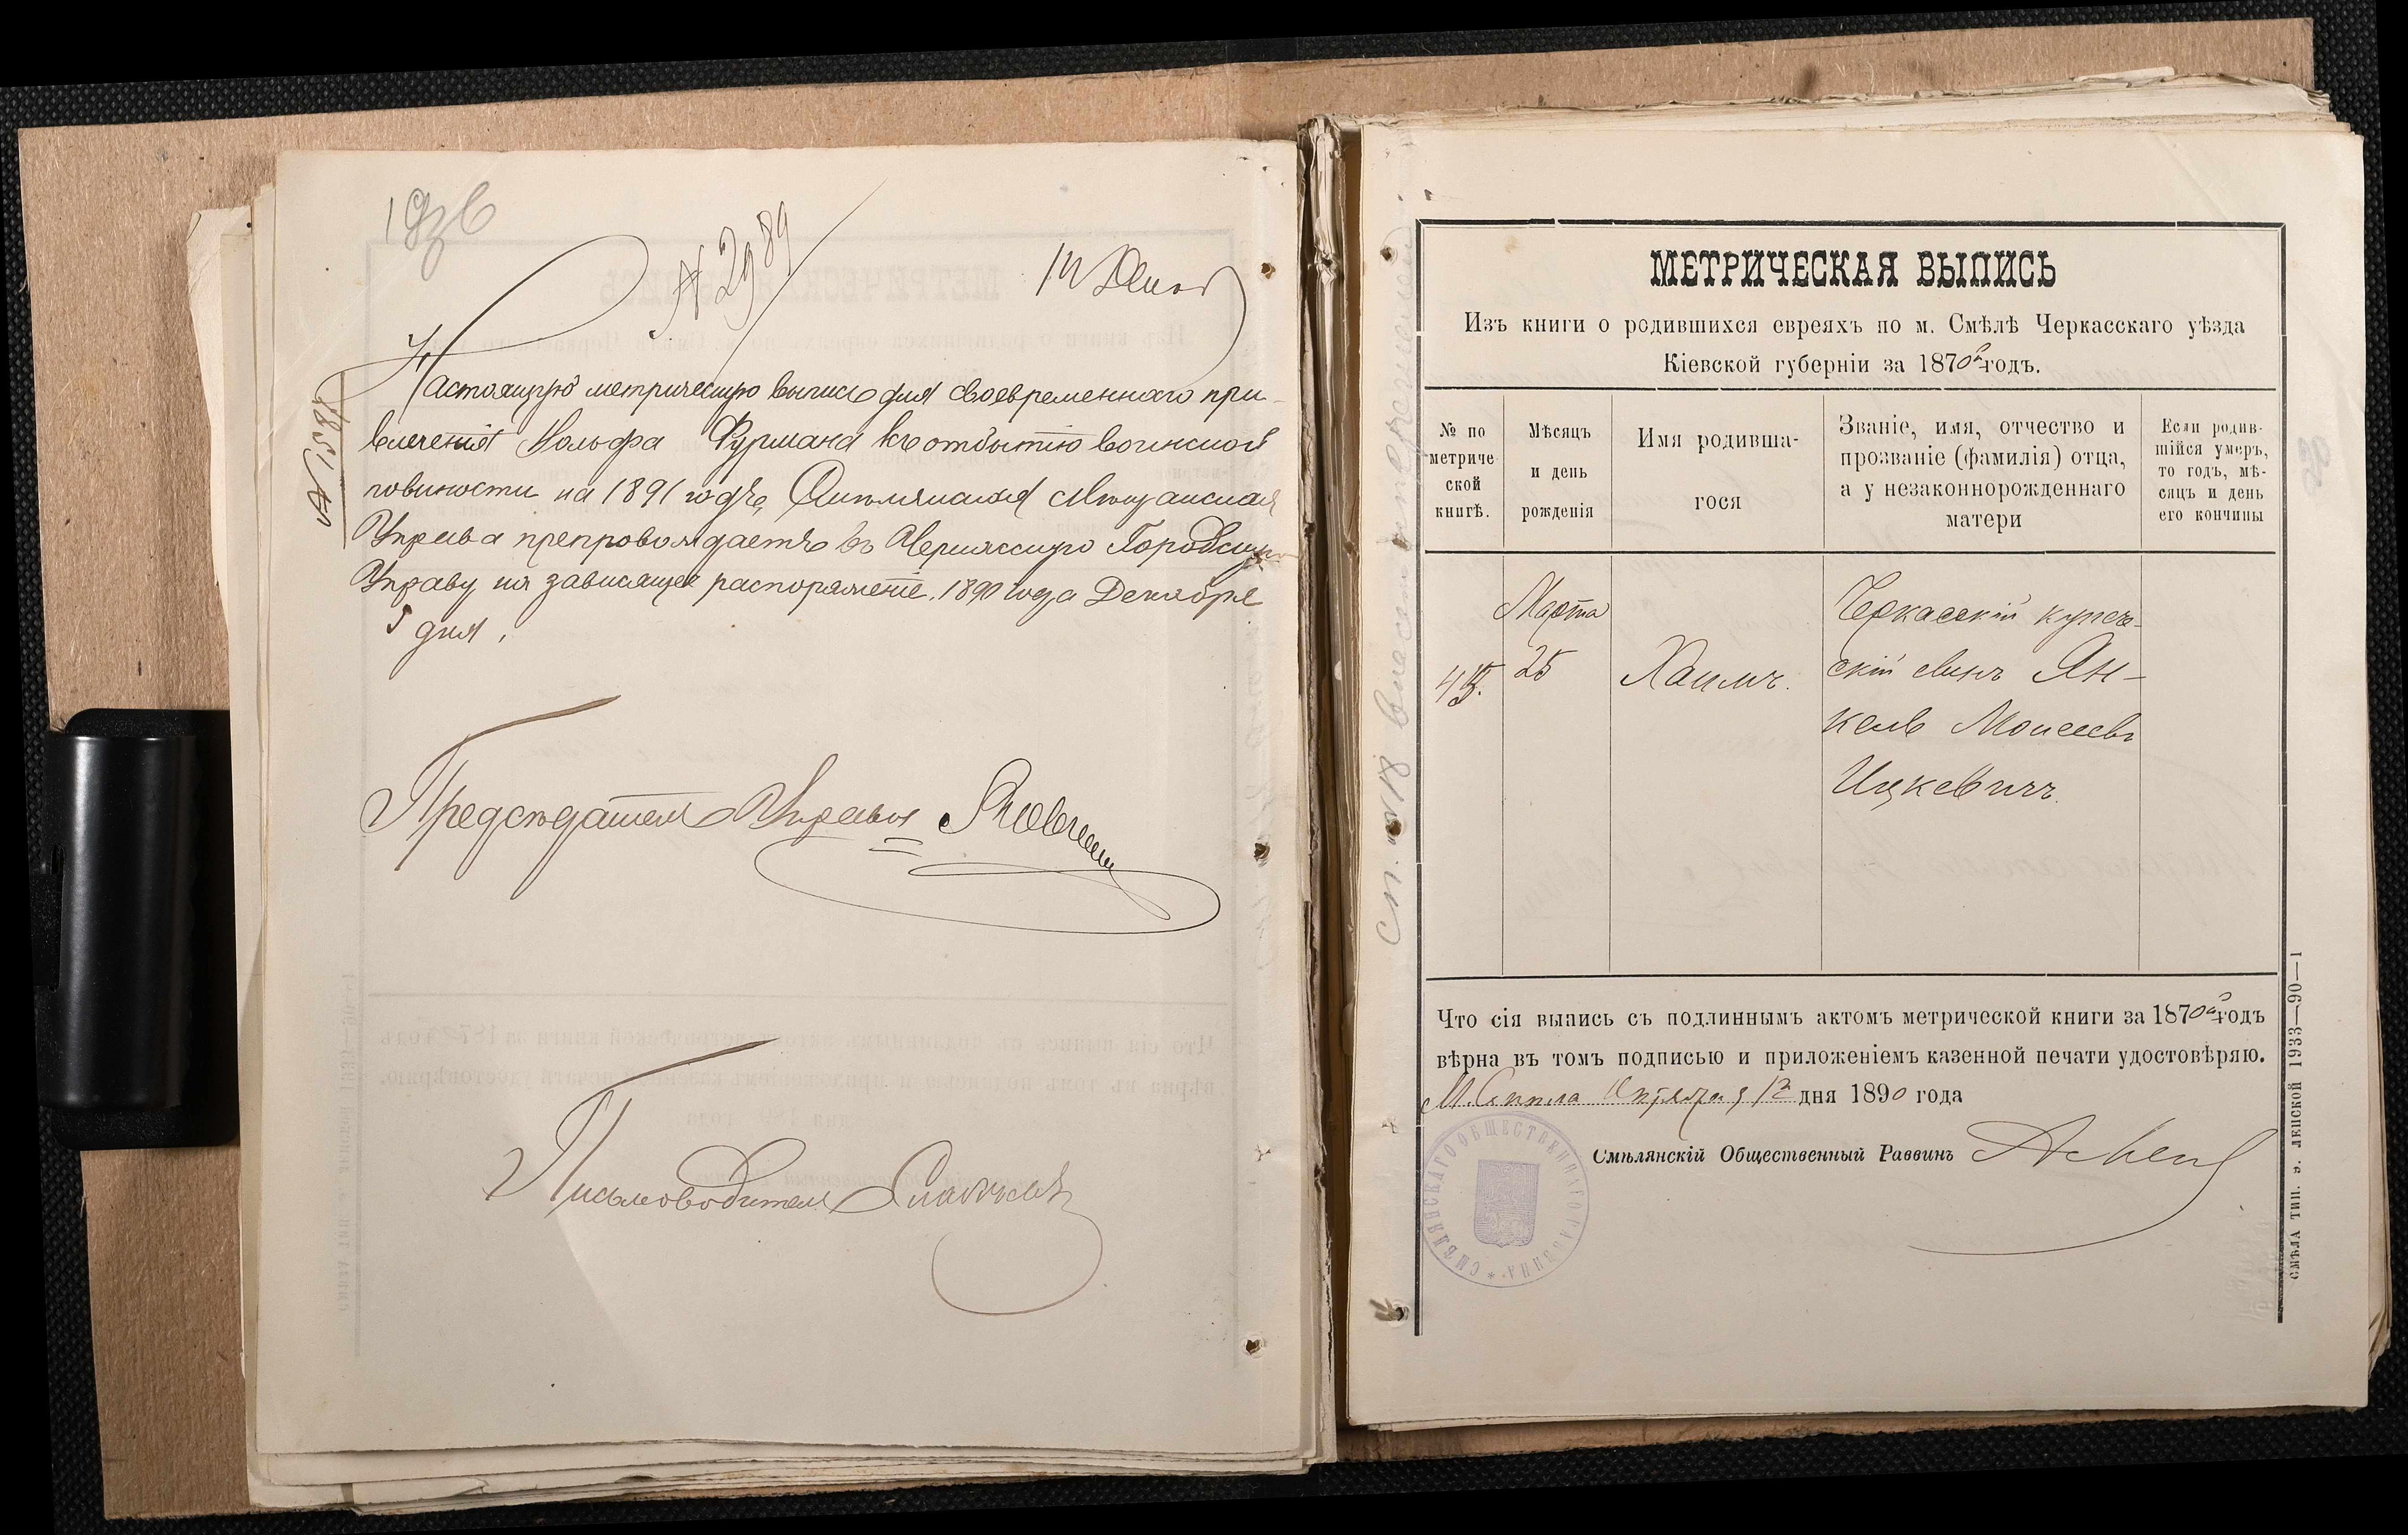 № 2989
№ 1587
Настоящую метрическую выпись для своевременнаго при-
влеченія Вольфа Фурмана къ отбытію воинской
повинности на 1891 годъ, Смѣлянская Мѣщанская
Управа препровождаетъ въ Черкасскую Городскую
Управу на зависящее распоряженіе. 1890 года Декабря
5 дня.
Предсѣдатель Управы
Письмоводитель
МЕТРИЧЕСКАЯ ВЫПИСЬ
Изъ книги о родившихся евреяхъ по м. Смѣлѣ Черкасскаго уѣзда
Кіевской губерніи за 1870й годъ.
№ по метриче ской книгѣ.
Мѣсяцъ и день рожденія
Имя родивша- гося
Званіе, имя, отчество и прозваніе (фамилія) отца, а у незаконнорожденнаго матери
Если родив- шійся умеръ, то годъ, мѣ- сяцъ и день его кончины
45.
Марта
25
Хаимъ.
Черкасскій купече-
скій сынъ Ян-
кель Моисеевъ
Ицкевичъ.
Что сія выпись съ подлиннымъ актомъ метрической книги за 1870й годъ
вѣрна въ томъ подписью и приложеніемъ казенной печати удостовѣряю.
М. Смѣла Апрѣля 12 дня 1890 года
Смѣлянскій Общественный Раввинъ
СМѢЛЯНСКАГО ОБЩЕСТВЕННАГО РАВВИНА
СМѢЛА ТИП. Э. ЛЕПСКОЙ 1933—90—1